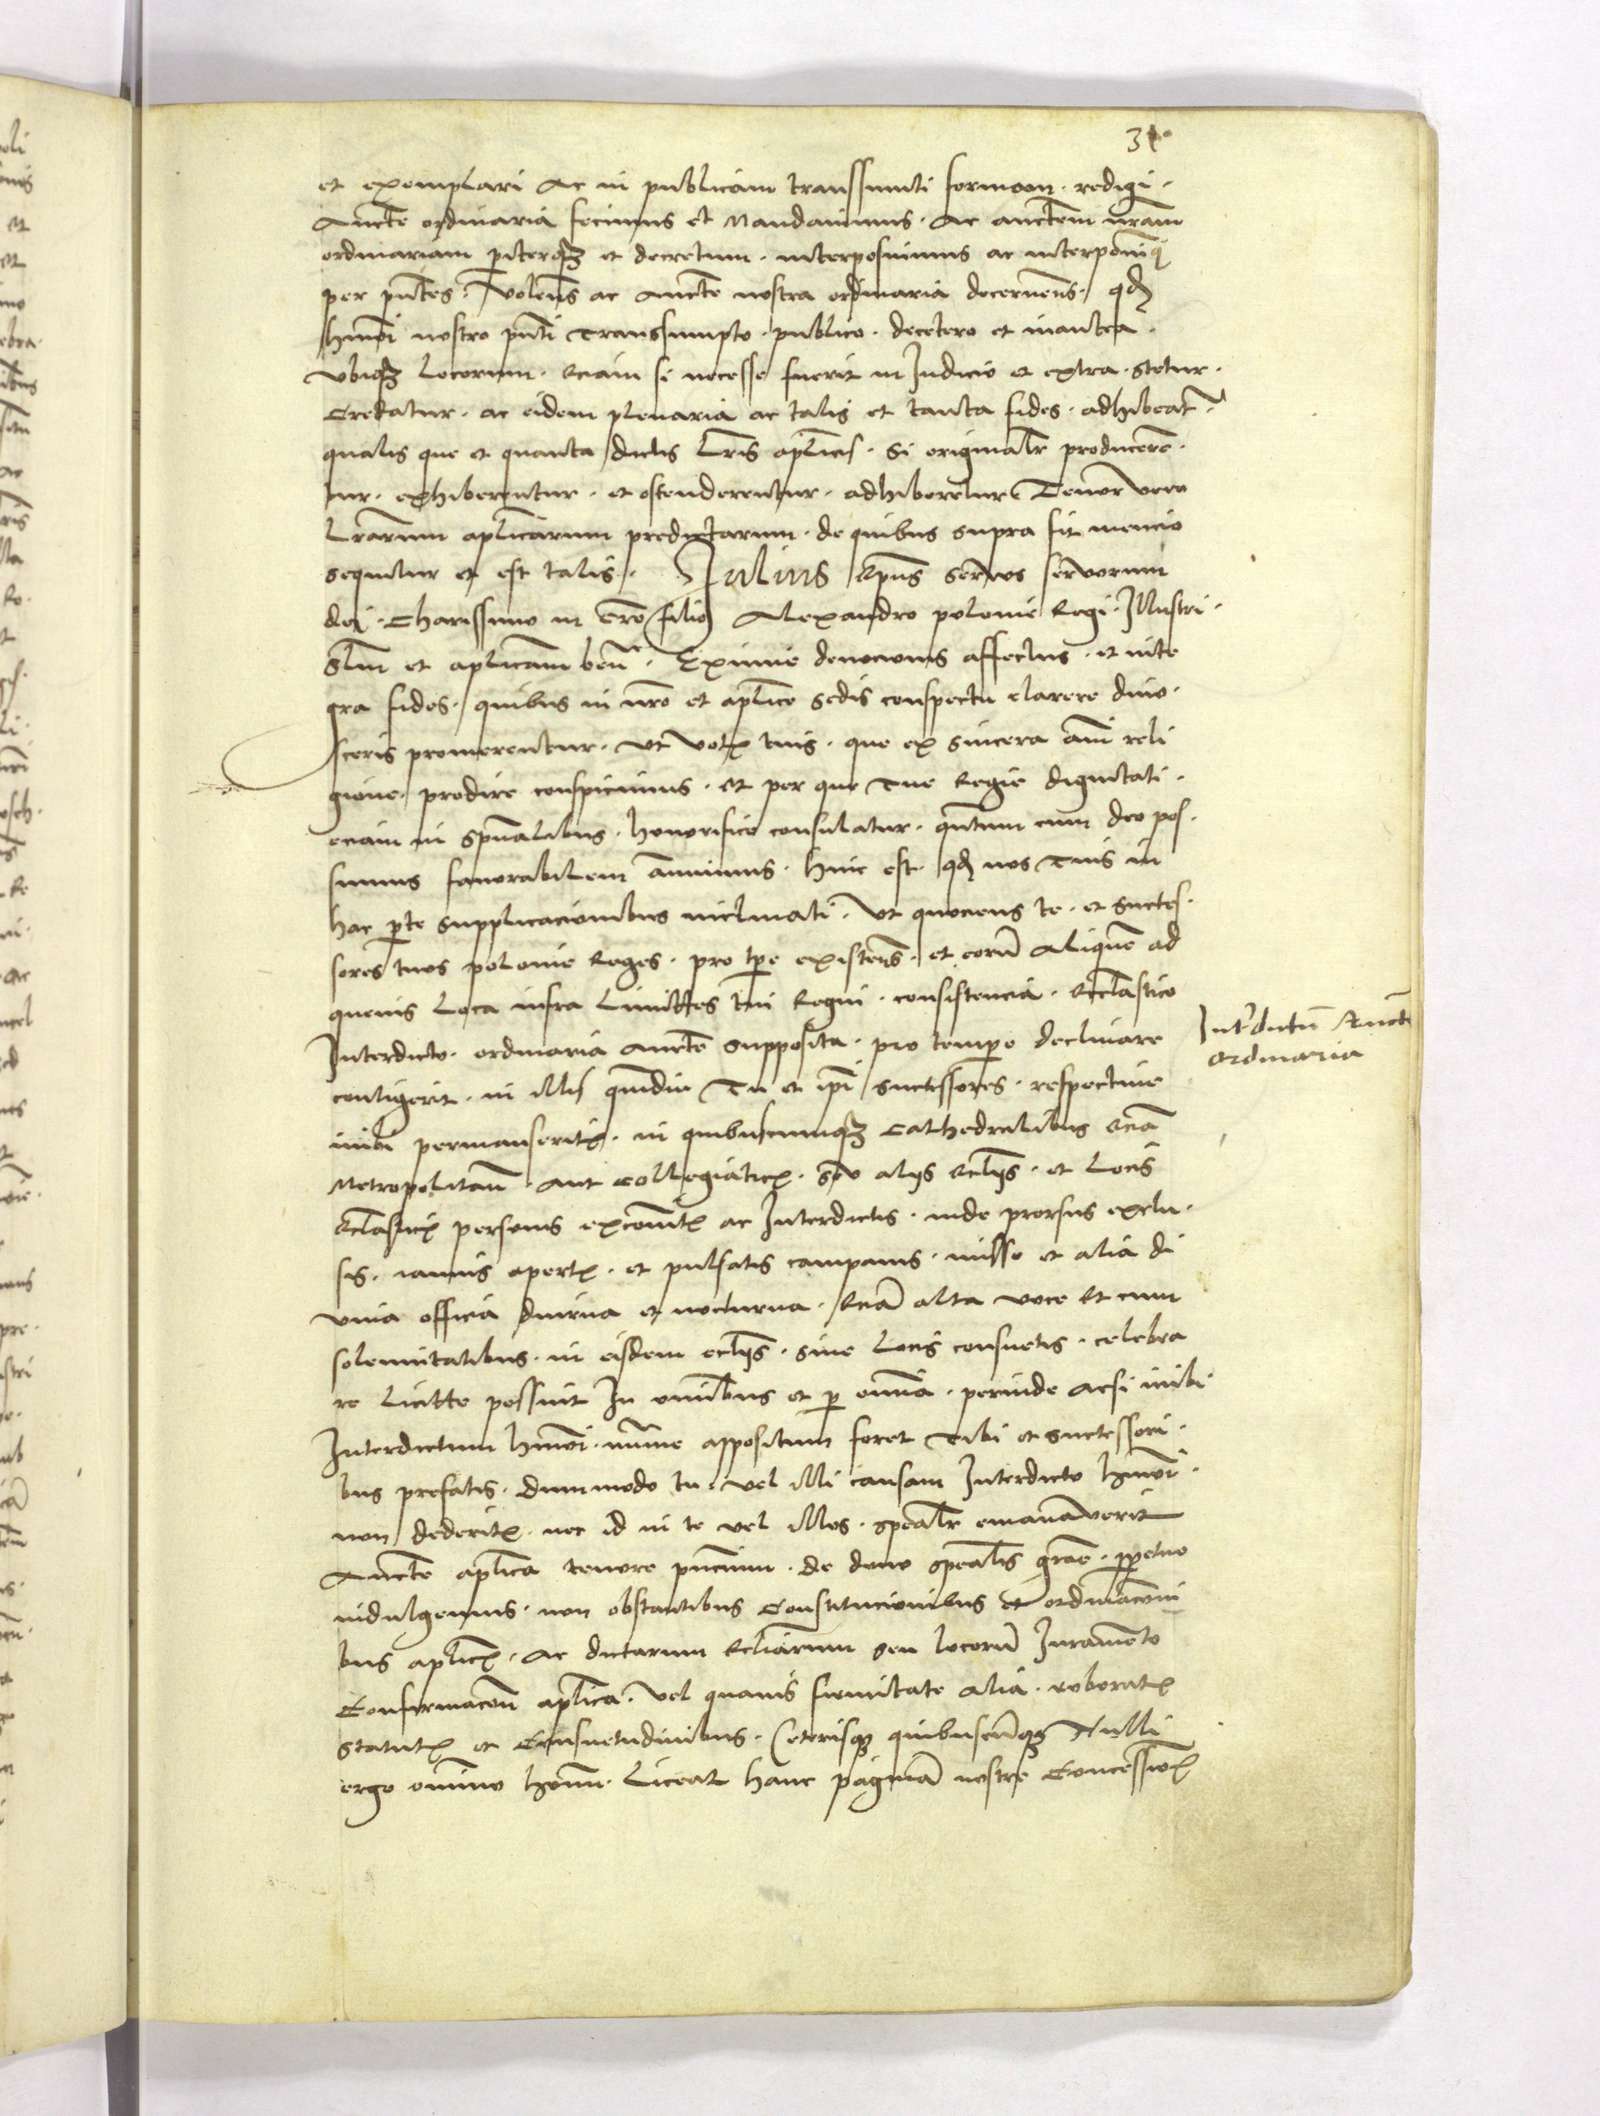 31
et exemplari ac in publicam transsumti formam redigi.
Aucte ordinaria fecimus et Mandavimus. Ac auctem nram
ordinariam pariterqz et decretum. interposuimus ac interponimq
per pntes. Volens ac Aucte nostra ordinaria decernens. qd
hmoi nostro pnti Transsumpto. publico. decetero et inantea.
Vbiqz Locorum. Eciam si necesse fuerit in Iudicio et extra. stetur.
Credatur. ac eidem plenaria ac talis et tanta fides. adhibeatr
qualis que et quanta dictis Lris aplicis. Si originalr producere.
tur. exhiberentur. et ostenderentur. adhiberetur Tenor vero
Lrarum aplicarum predictarum. de quibus supra fit mencio
sequitur et est talis. Julius Epus servos servorum
dei. Charissimo in Cro filio Alexandro polonie Regi. Illustri.
Slm et aplicam ben. Eximie devocionis affectus. et inte
gra fides. quibus in nro et aplice sedis conspectu clarere dino.
sceris promerentur. Ut votis tuis. que ex sincera ani reli
gione. prodire conspicimus. et per que Tue Regie dignitati.
eciam in spualibus. honorifice consulatur. qntum cum deo pos.
sumus favorabilem annuimus. hinc est. qd nos Tuis in
hac pte supplicacionibus inclinati. Ut quociens te. et succes.
sores tuos polonie Reges. pro tpe existens. et eorum Aliquem ad
quevis Loca infra Limittes tui Regni. consistencia. Ecclastico
Interdicto. ordinaria Aucte supposita. pro tempore declinare
contigerit. in illis qmdiu Tu et ipi successores. respective
inibi permanseritis. in quibuscumqz Cathedralibus Ecia
Metropolitan. Aut Collegiatis. seu alijs Eclijs. et Locis
Eclasticis personis excomtis ac Interdictis. inde prorsus exclu.
sis. ianuis apertis. et pulsatis campanis. misse et alia di
vina officia diurna et nocturna. Ecia alta voce Et cum
solennitatibus. in eisdem eclijs. sive Locis consuetis. celebra
re Licitte possint In omnibus et p omnia. perinde acsi inibi
Interdictum hmoi. mime appositum foret Tibi et successori.
bus prefatis. Dummodo tu. vel illi causam Interdicto hmoi.
non dederitis. nec id in te vel illos. specialr emanaverit
Aucte aplica tenore pncium. de dono specialis grae. ppetuo
indulgemus. non obstantibus Constitucionibus et ordinaconi
bus aplicis. Ac dictarum Ecliarum seu locorum Iuramento
Confirmacon aplica. Vel quavis firmitate alia. roboratis
statutis et Consuetudinibus. Ceterisqz quibuscumqz Nulli
ergo omnino homi. Liceat hanc pagina nostre Concessionis
Interdictum Aucte
ordinaria